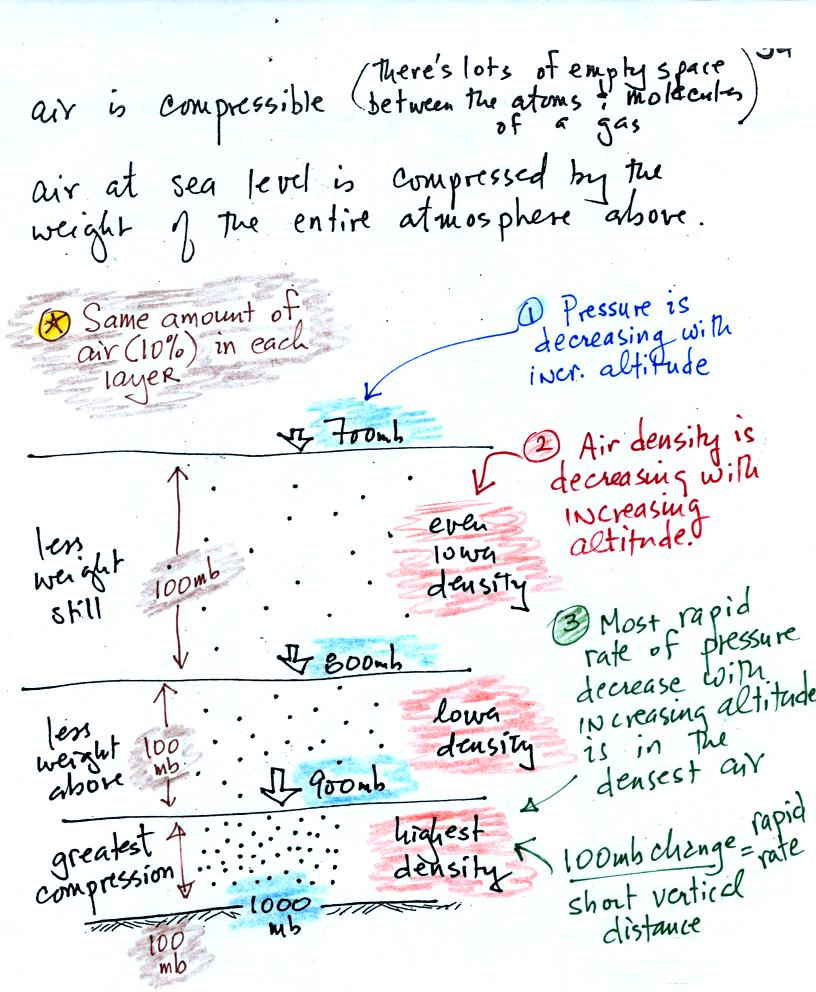 air is compressible (there's lots of empty space
between the atoms & molecules
of a gas)
air at sea level is compressed by the
weight of the entire atmosphere above.
Same amount of
air (10%) in each
layer
1 Pressure is
decreasing with
incr. altitude
700mb
2 Air density is
decreasing with
increasing
altitude.
less
weight
still
100mb
even
lower
density
800mb
3 Most rapid
rate of pressure
decrease with
increasing altitude
is in the
densest air
less
weight
above
100
mb
lower
density
900mb
greatest
compression
highest
density
100mb change = rapid
rate
short vertical
distance
1000
mb
100
mb